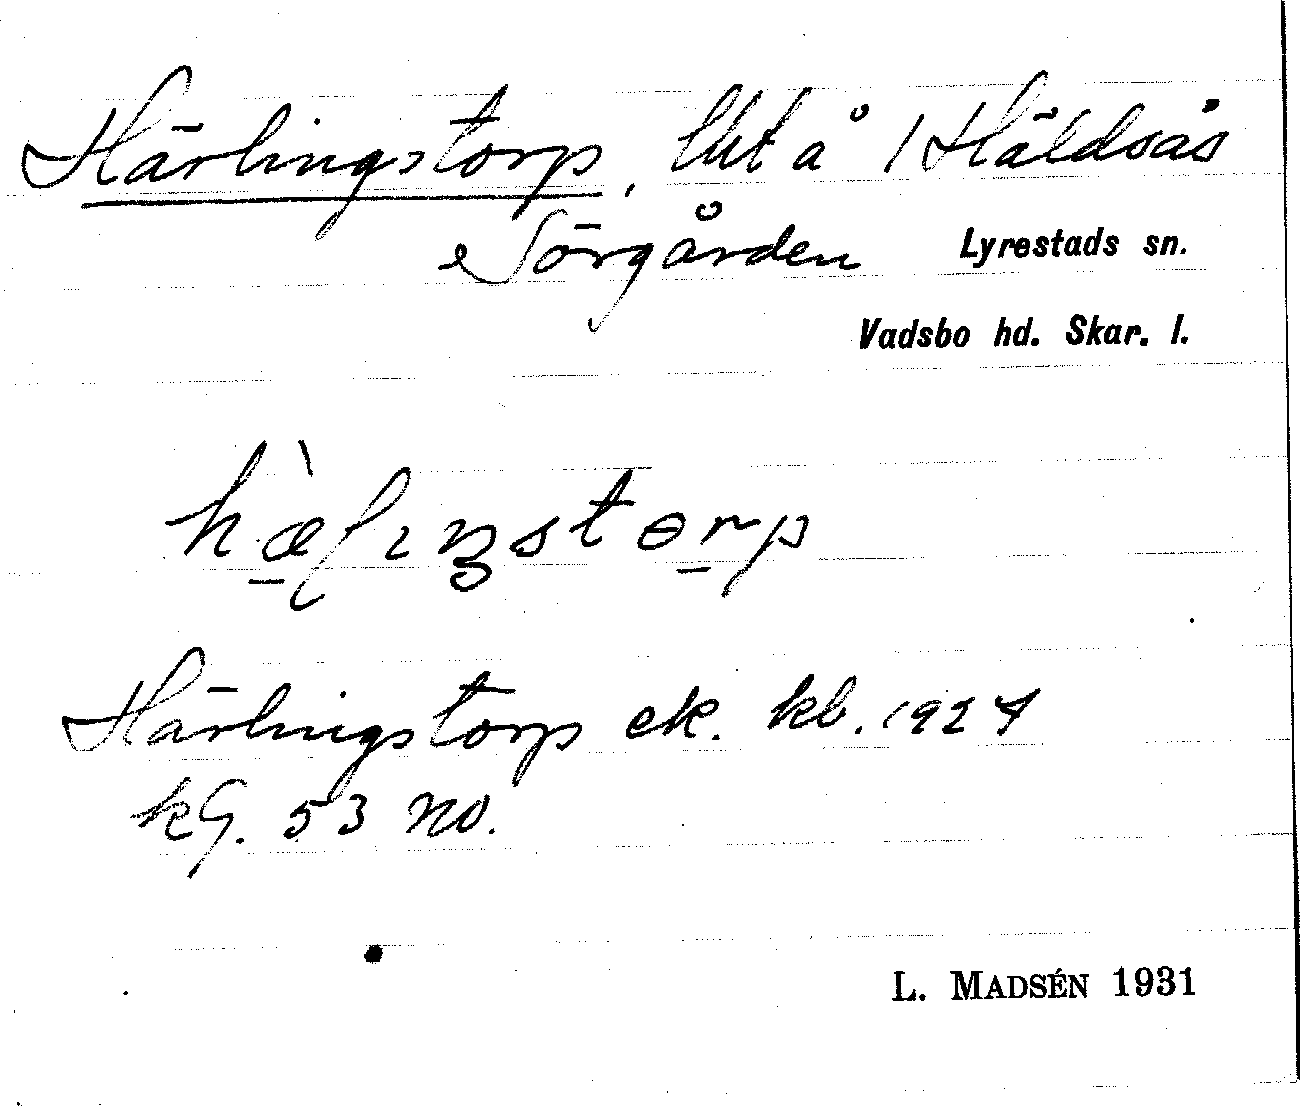 Härlingstorp, lht å 1 Häldsås
Sörgården Lyrestads sn.
Vadsbo hd. Skar. l.
Härlingstorp ek. kb. 1924
kG. 53 no.
L. MADSÉN 1931